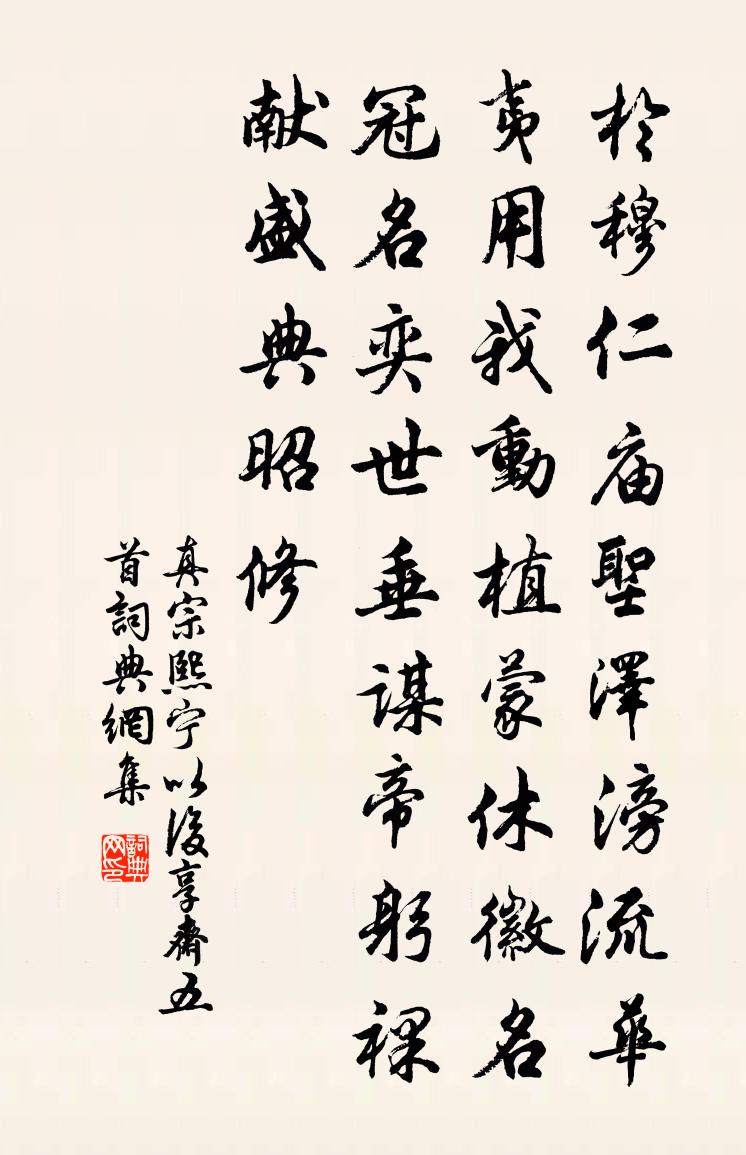 於穆仁庙聖澤滂流華
夷用我動植蒙休徽名
冠名奕世垂謀帝躬裸
献盛典昭修
真宗熙宁以後享齋五
首詞典網集
詞典网印